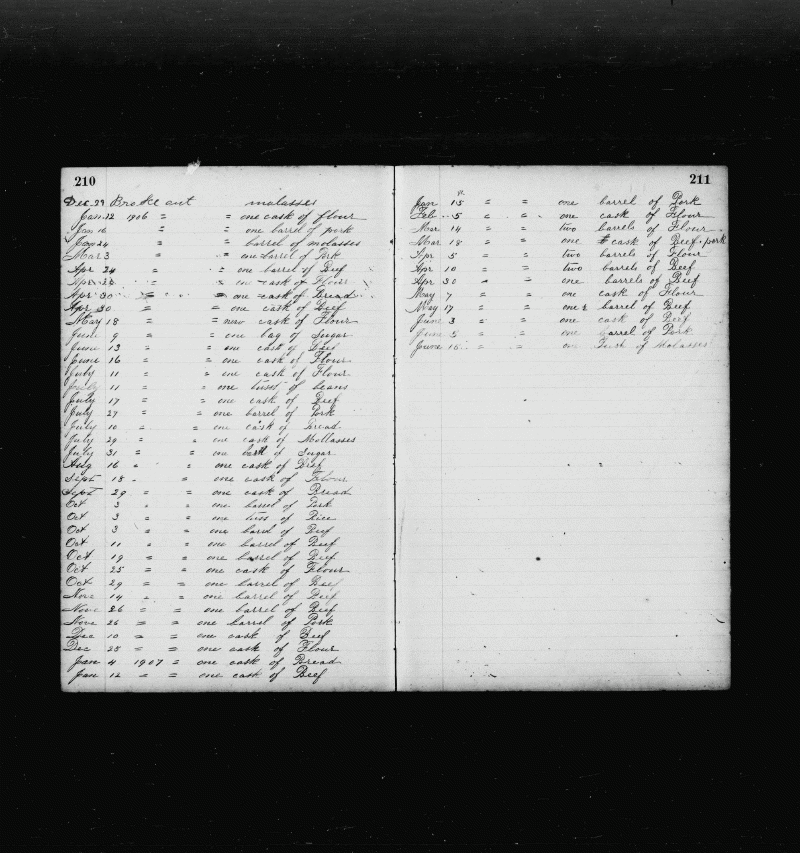 210
Dec 29 Broke out molasses
Jan 12 1906 " " one cask of flour
Jan 16 " " one barrel of pork
Jan 24 " " barrel of molasses
Mar 3 " " one barrel of Pork
Apr 24 " " one barrel of Beef
Apr 28 " " one cask of Flour
Apr 30 " " " one cask of Bread
Apr 30 " " one cask of Beef
May 18 " " new cask of Flour
June 9 " " one bag of Sugar
June 13 " " one cask of Beef
June 16 " " one cask of Flour
July 11 " " one cask of Flour
July 11 " " one of beans
July 17 " " one cask of Beef
July 27 " " one barrel of Pork
July 10 " " one cask of Bread
July 29 " " one cask of Mollasses
July 31 " " one of Sugar
Aug 16 " " one cask of Beef
Sept 18 " one cask of Flour
Sept 29 " " one cask of Bread
Oct 3 " " one barrel of Pork
Oct 3 " " one of Rice
Oct 3 " " one barel of Beef
Oct 11 " " one barrel of Beef
Oct 19 " " one barrel of Beef
Oct 25 " " one cask of Flour
Oct 29 " " one barrel of Beef
Nove 14 " " one barrel of Beef
Nove 26 " " one barrel of Beef
Nove 26 " " one barrel of Pork
Dec 10 " " one cask of Beef
Dec 25 " " one cask of Flour
Jan 4 1907 " one cask of Bread
Jan 12 " " one cask of Beef
211
Jan 15 " " one barrel of Pork
Feb 5 " " one cask of Flour
Mar 14 " " two barrels of Flour
Mar 18 " " one cask of Beef pork
Apr 5 " " two barrels of Flour
Apr 10 " " two barrels of Beef
Apr 30 " " one barrels of Beef
May 7 " " one cask of Flour
May 17 " " one barrel of Beef
June 3 " " one cask of Beef
June 5 " " one barrel of Pork
June 15 " " one of Molasses